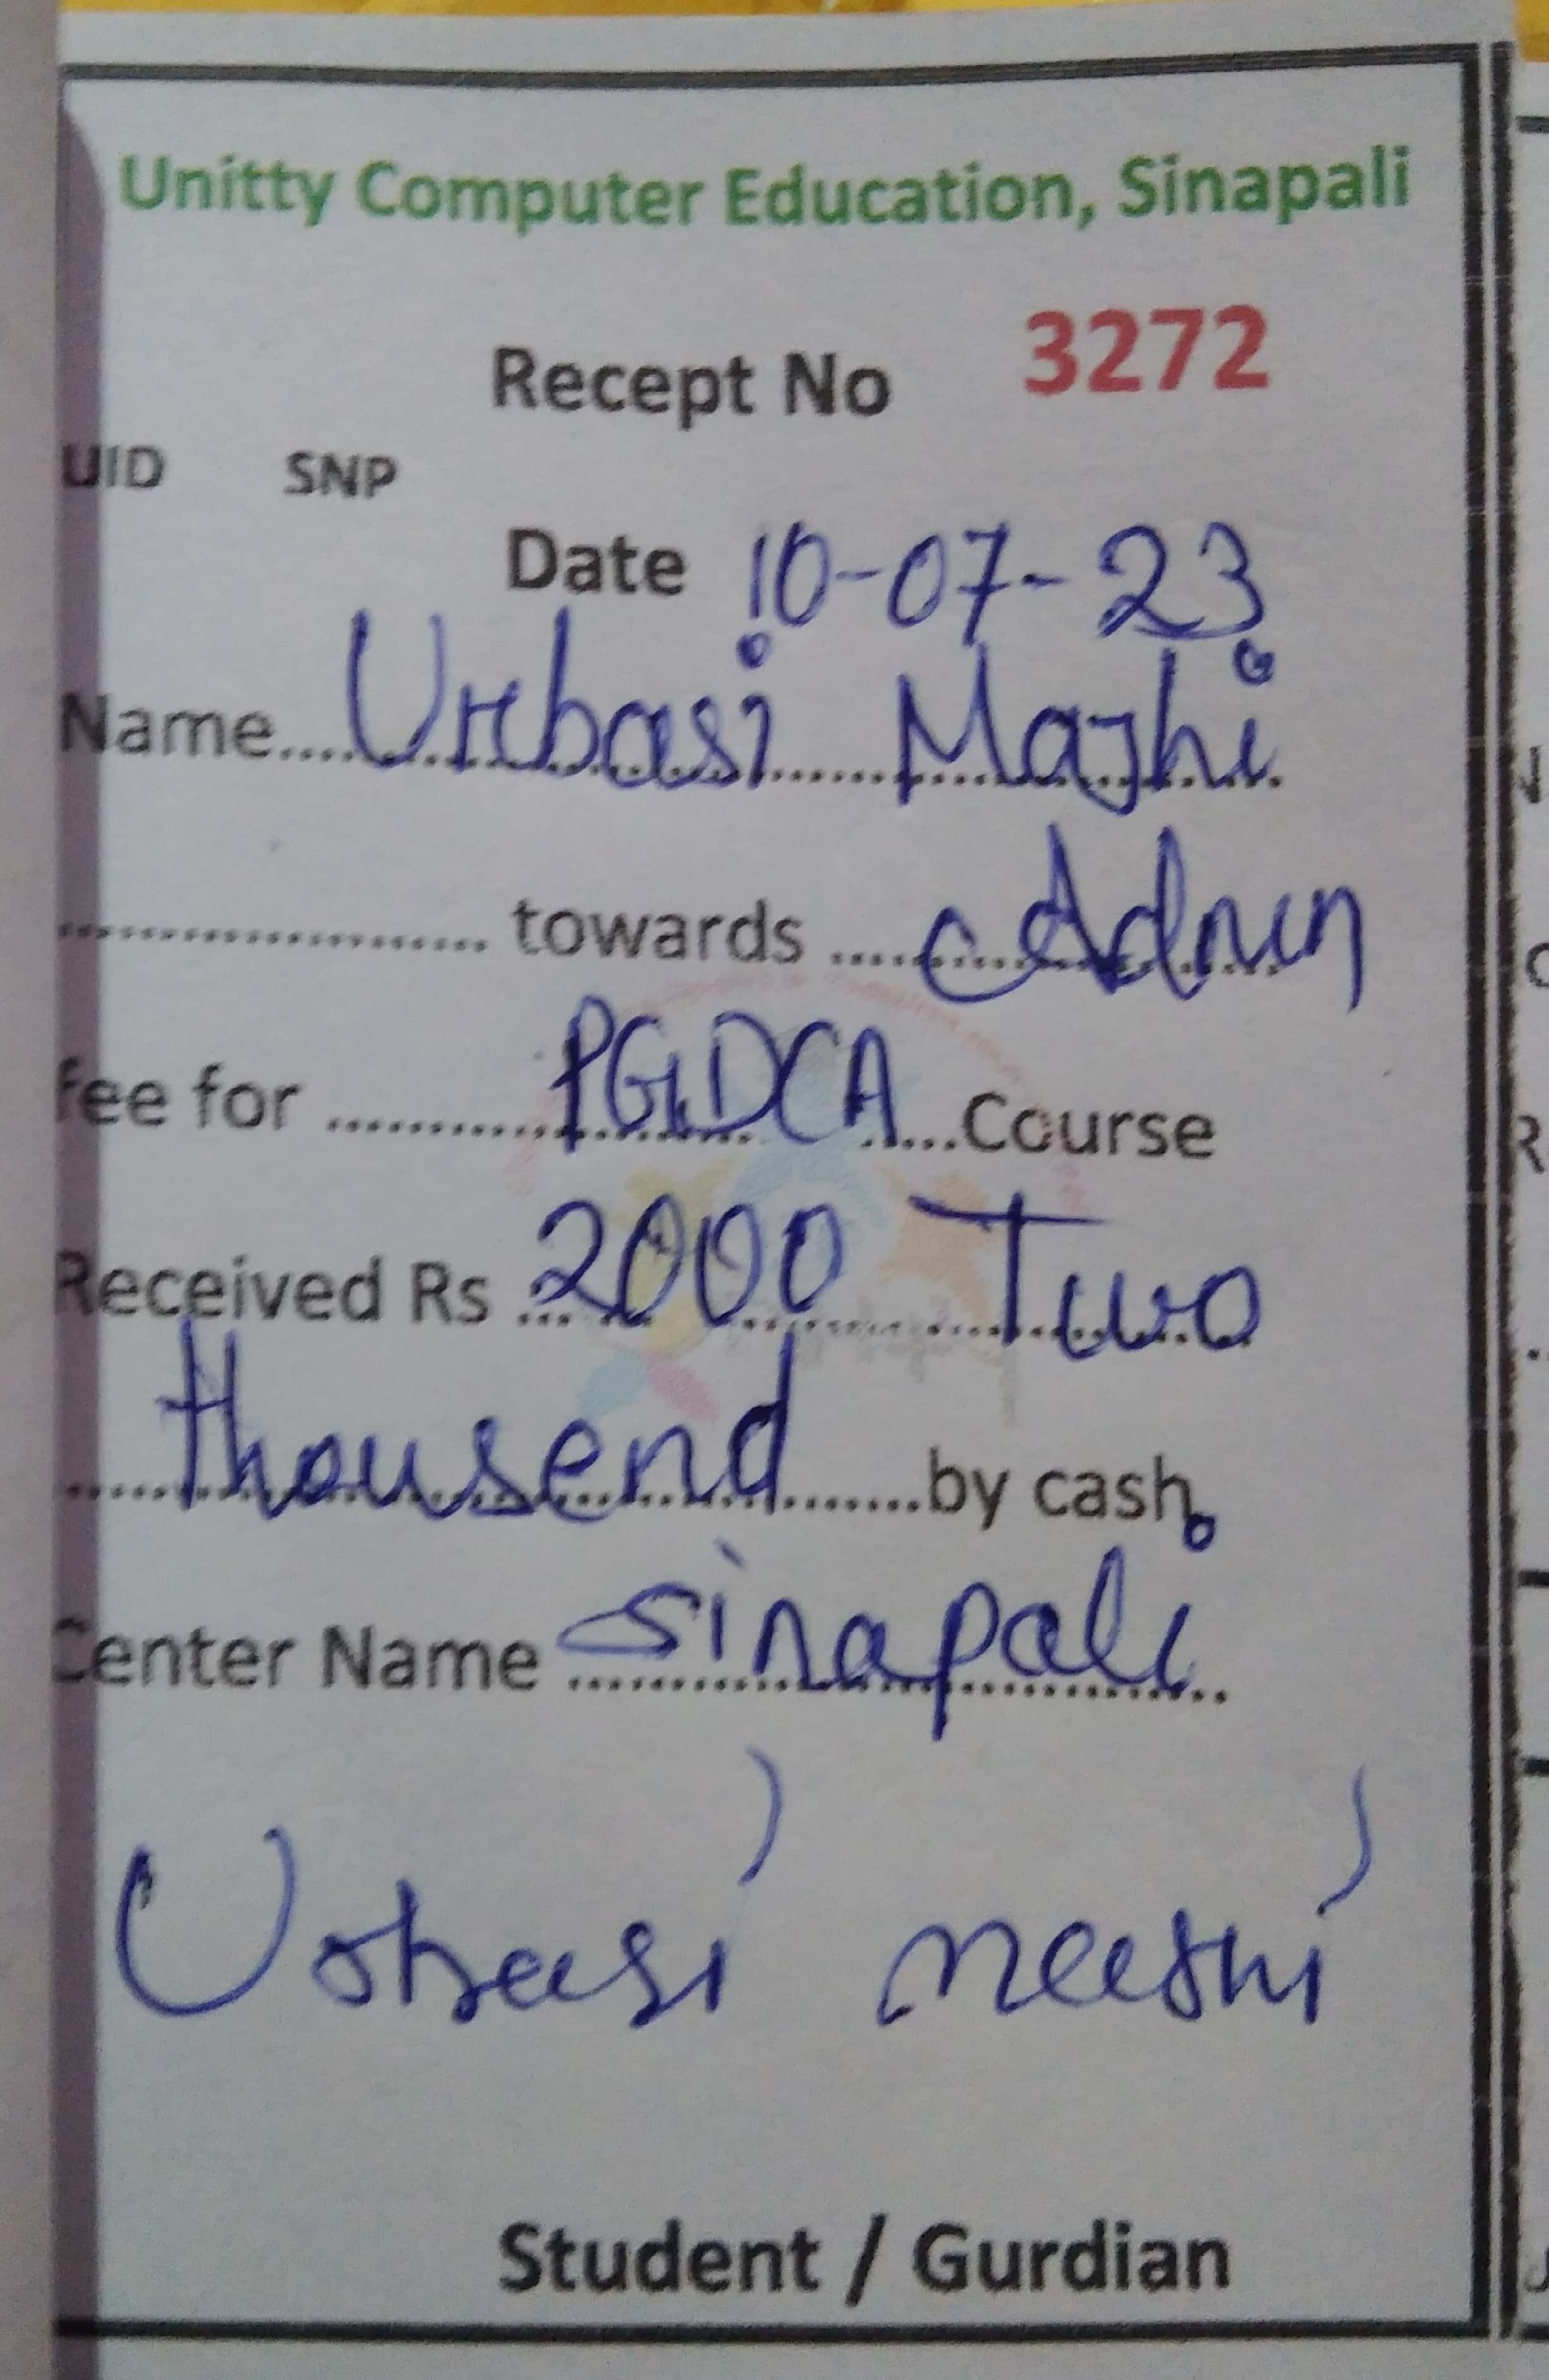 Unitty Computer Education, Sinapali
Recept No 3272
UID SNP
Date 10-07-23
Name.... Urbasi Majhi
.................... towards ..... Admn
fee for ............ PGDCA ....Course
Received Rs ... 2000 Two
thousend ........by cash
Center Name Sinapali
Urbasi majhi
Student / Gurdian